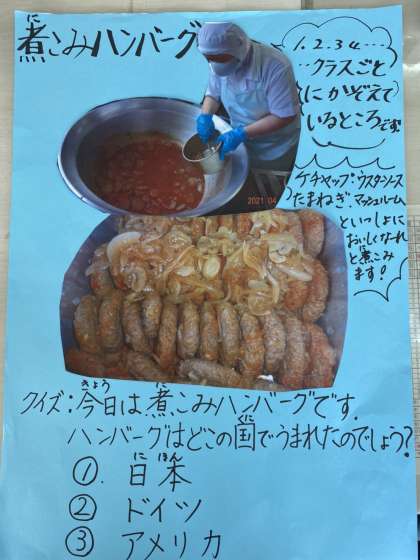 煮こみハンバーグ
に
1.2.34…
…クラスごと
にかぞえて
いるところです
2021 04
ケチャップ:ウスターソース
たまねぎ.マッシュルーム
といっしょに
おいしくなーれ
と煮こみ
ます!
きょう に
クイズ:今日は煮こみハンバーグです.
くに
ハンバーグはどこの国でうまれたのでしょう?
に ほん
①.日本
② ドイツ
③ アメリカ